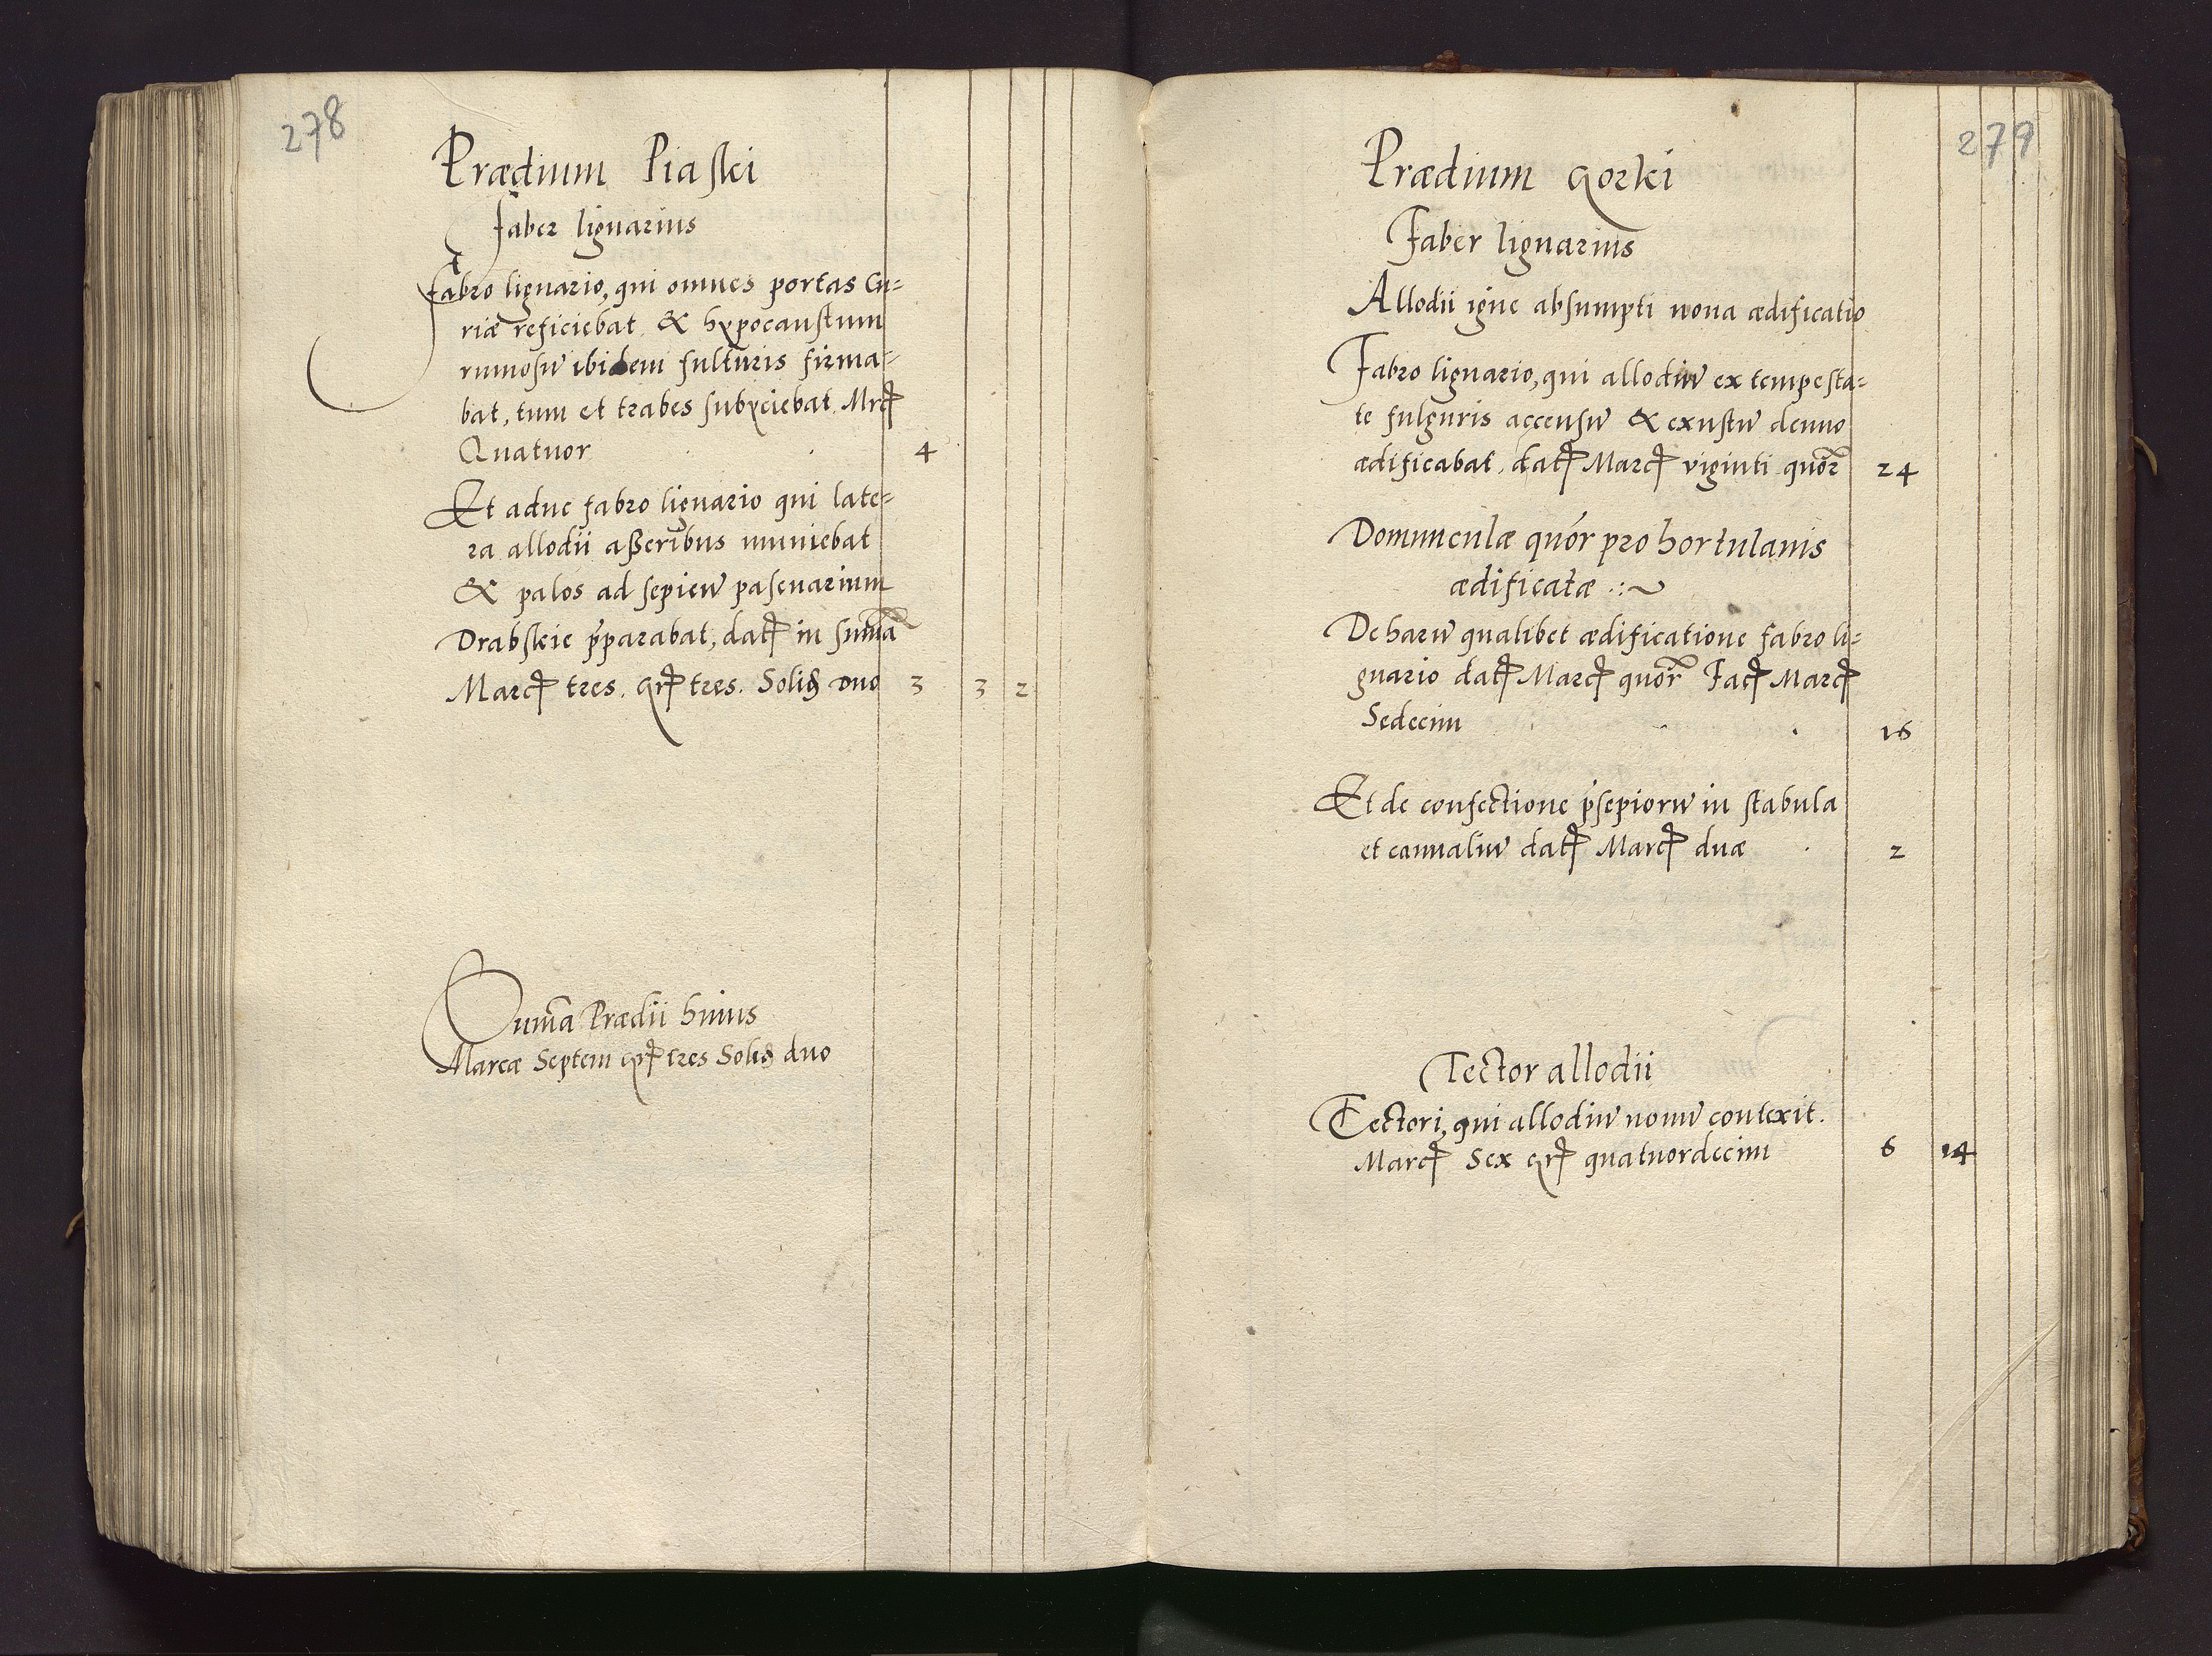 278
Prædium Piaski
Faber lignarius
Fabro lignario, qui omnes portas Cu=
riæ reficiebat & hypocaustum
ruinosũ ibidem fulturis firma=
bat, tum et trabes subyciebat Mrcꝭ
Quatuor 4
Et aduc fabro lignario qui late=
ra allodii asseribus muniebat
& palos ad sepiem
Drabskie p̃parabat, datꝭ in sum̃a
Marcꝭ tres. grꝭ tres. Solid duo 3 3 2
Sum̃a Prædii huius
Marcæ Septem grꝭ tres Solid duo
279
Prædium Gorki
Faber lignarius
Allodii igne absumpti noua ædificatio
Fabro lignario, qui allodiũ ex tempesta=
te fulguris accensũ & exustũ denuo
ædificabat, datꝭ Marcꝭ viginti quõr 24
Domunculæ quór pro hortulanis
ædificatæ .:~
De harũ qualibet ædificatione fabro li=
gnario datꝭ Marcꝭ quõr Facꝭ Marcꝭ
Sedecim 16
Et de confectione p̃sepiorũ in stabula
et cannaliũ datꝭ Marcꝭ duæ 2
Tector allodii
Tectori, qui allodiũ nouũ contexit.
Marcꝭ Sex grꝭ quatuordecim 6 14